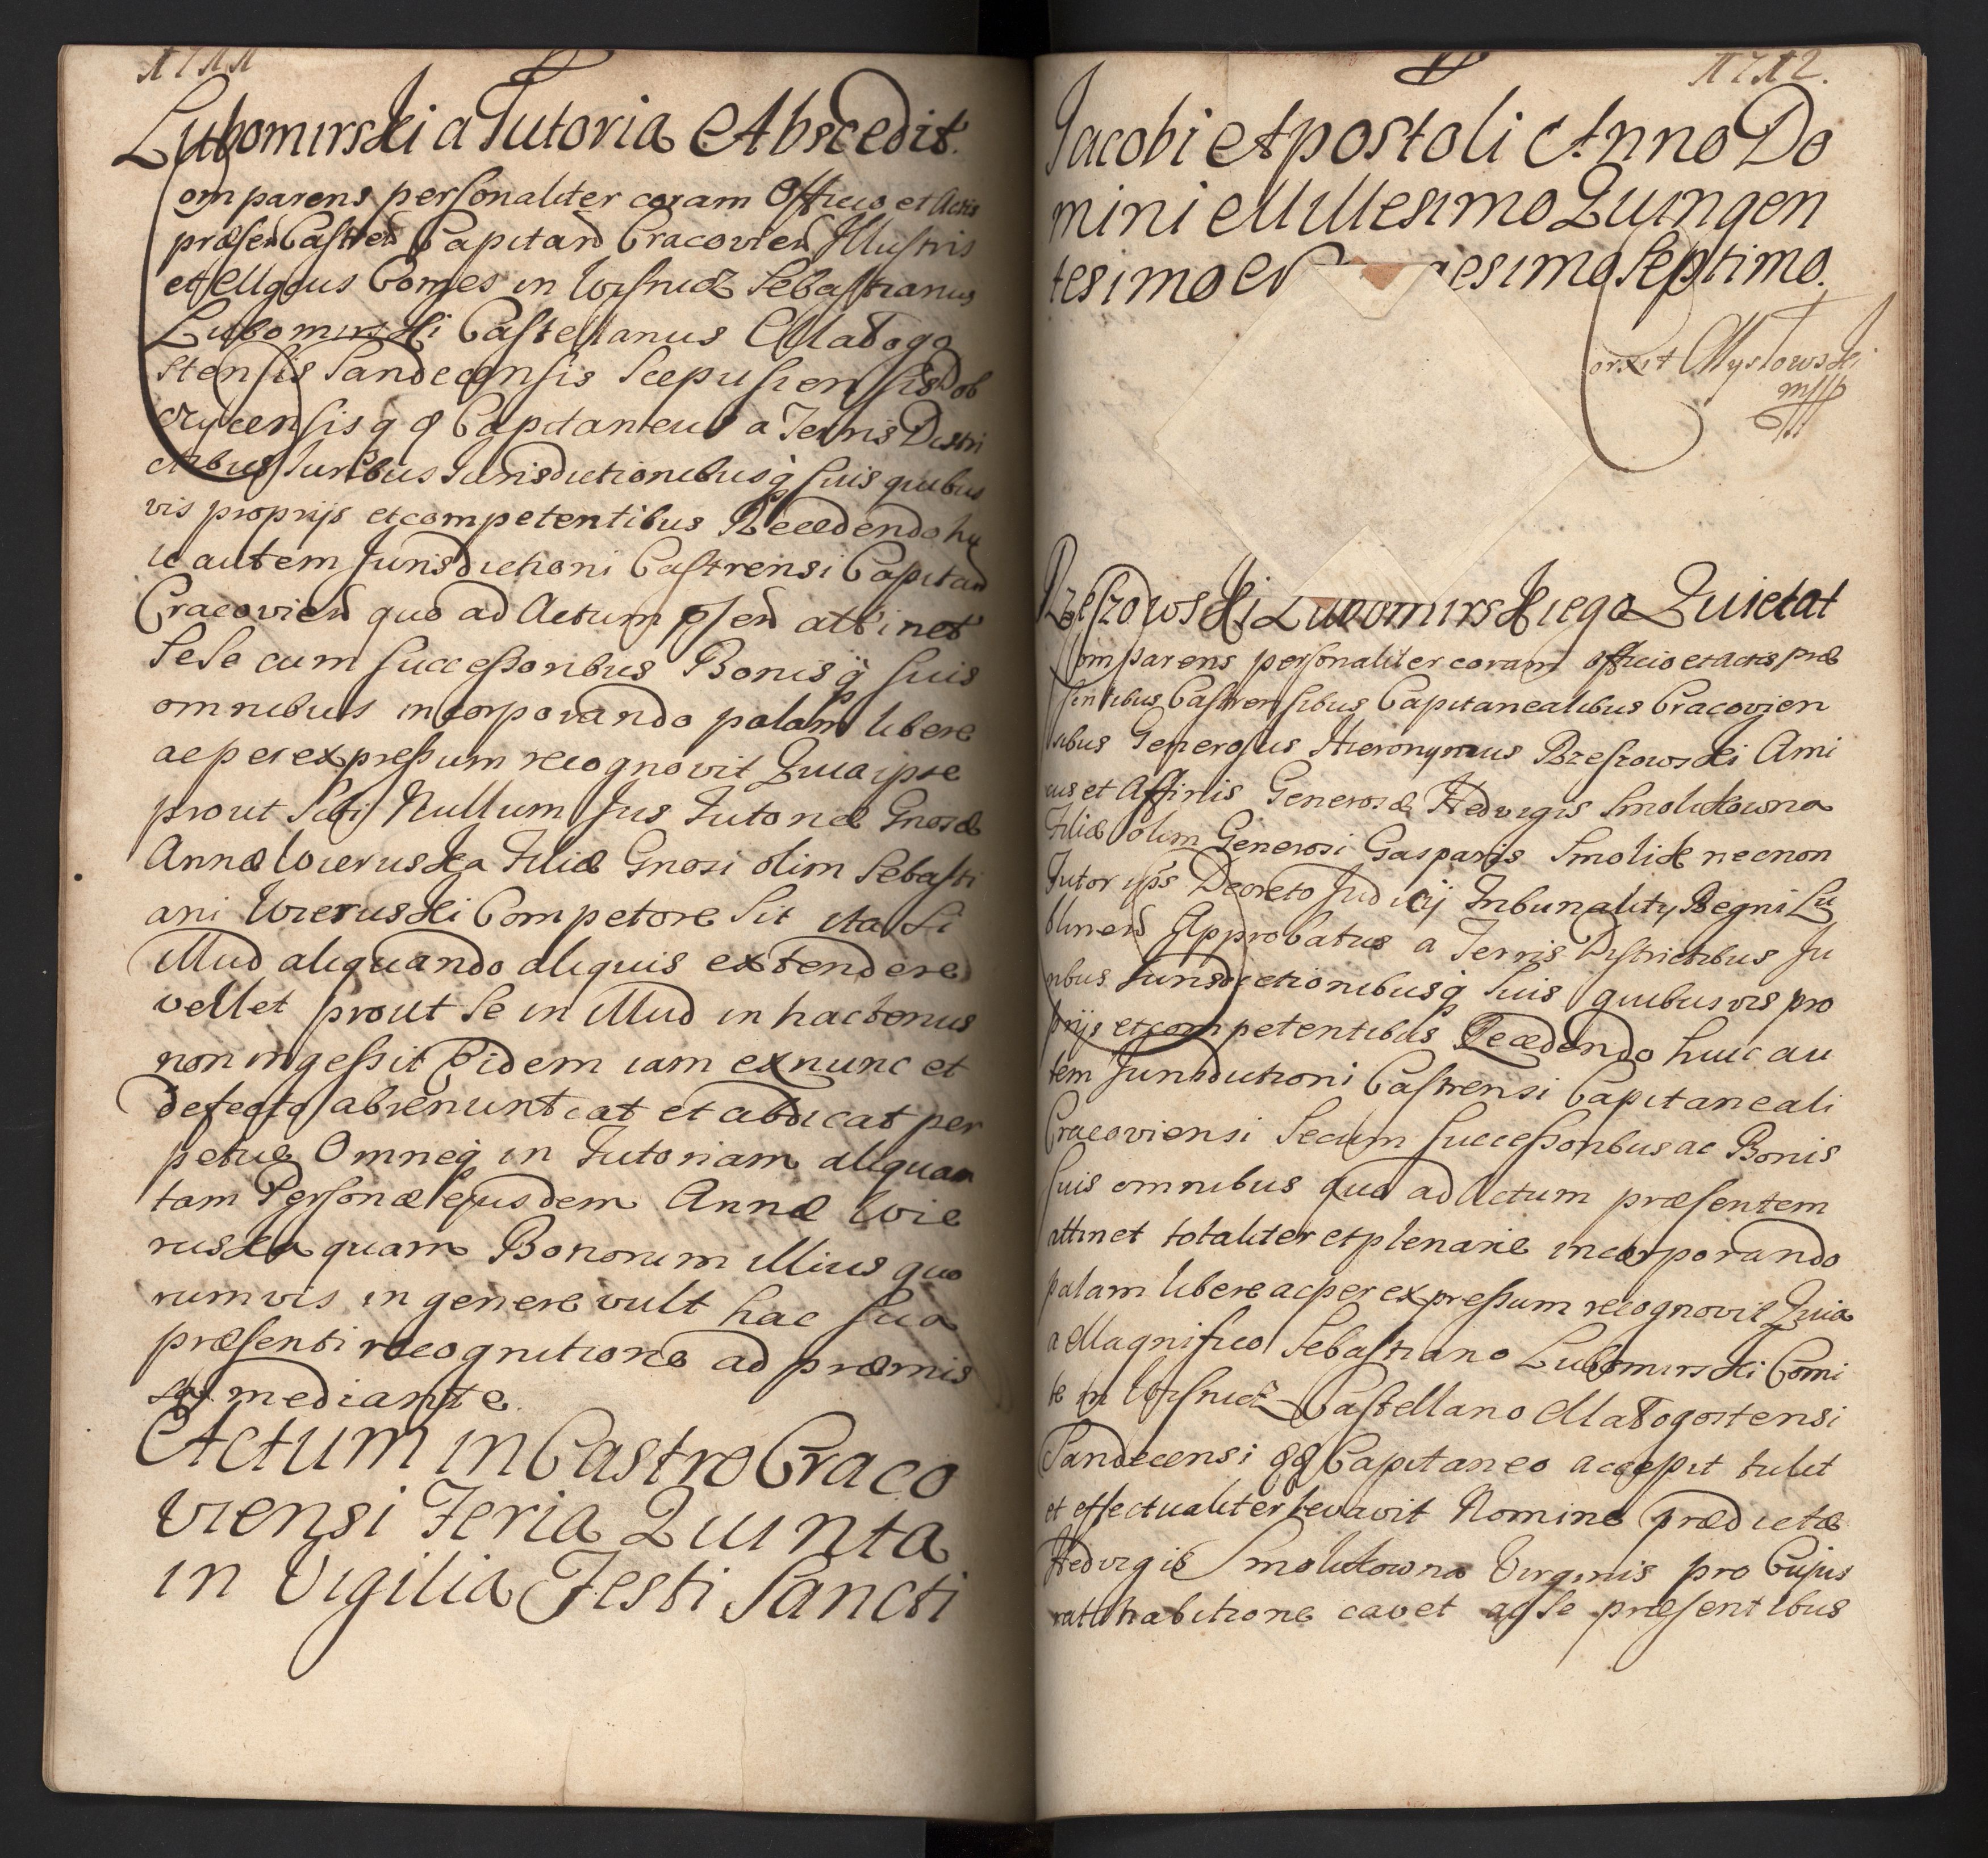 1711
Lubomirski a Tutoria Abscedit.
Comparens personaliter coram Officio et Actis
præsen Castren Capitan Cracovien Illustris
et Mgcus Comes in Wisnicz Sebastianus
Lubomirski Castellanus Małogo
stensis Sandecensis Scepusiensis Dob
czycensisq q Capitaneus a Terris Distri
ctibus Juribus Jurisdictionibusq suis quibus
vis proprijs et competentibus Recedendo hu
ic autem Jurisdictioni Castrensi Capitan
Cracovien quo ad Actum psen attinet
Sese cum successoribus Bonisq suis
omnibus incorporando palam libere
ac per expressum recognovit Quia ipse
prout Sibi Nullum Jus Tutoriæ Gnosæ
Annæ Wieruska Filiæ Gnosi olim Sebasti
ani Wieruski Competere Sit ita Si
illud aliquando aliquis extendere
vellet prout Se in illud in hactenus
non ingessit Eidem iam ex nunc et
defecto abrenuntiat et abdicat per
petue Omneq in Tutoriam aliquam
tam Personæ ejusdem Annæ Wie
ruska quam Bonorum illius quo
rumvis in genere vult hac sua
præsenti recognitione ad præmis
sa mediante.
Actum in Castro Craco
viensi Feria Quinta
in Vigilia Festi Sancti
1712.
Jacobi Apostoli Anno Do
mini Millesimo Quingen
tesimo esimo Septimo.
Corxit Mysłowski
mpp
Rzeszowski Lubomirskiego Quietat
Comparens personaliter coram officio et actis præ
sentibus Castrensibus Capitanealibus Cracovien
sibus Generosus Hieronymus Rzeszowski Ami
cus et Affinis Generosæ Hedvigis Smolikowna
Filiæ olim Generosi Gasparis Smolik necnon
Tutor ips Decreto Judicij Tribunality Regni Lu
blinen Approbatus a Terris Districtibus Ju
ribus Jurisdictionibusq suis quibusvis pro
prijs et competentibus Recedendo huic au
tem Jurisdictioni Castrensi Capitaneali
Cracoviensi Secum successoribus ac Bonis
suis omnibus quo ad Actum præsentem
attinet totaliter et plenarie incorporando
palam libere ac per expressum recognovit Quia
a Magnifico Sebastiano Lubomirski Comi
te in Wisnicz Castellano Małogostensi
Sandecensi qq Capitaneo accepit tulit
et effectualiter levavit Nomine prædictæ
Hedvigis Smolikowna Virginis pro Cujus
ratihabitione cavet ac se præsentibus